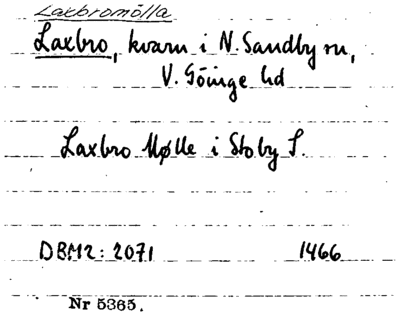 Laxbromölla
Laxbro, kvarn i N. Sandby sn,
V. Göinge hd
Laxbro Mølle i Stoby S.
DBM2: 2071 1466
Nr 5365.